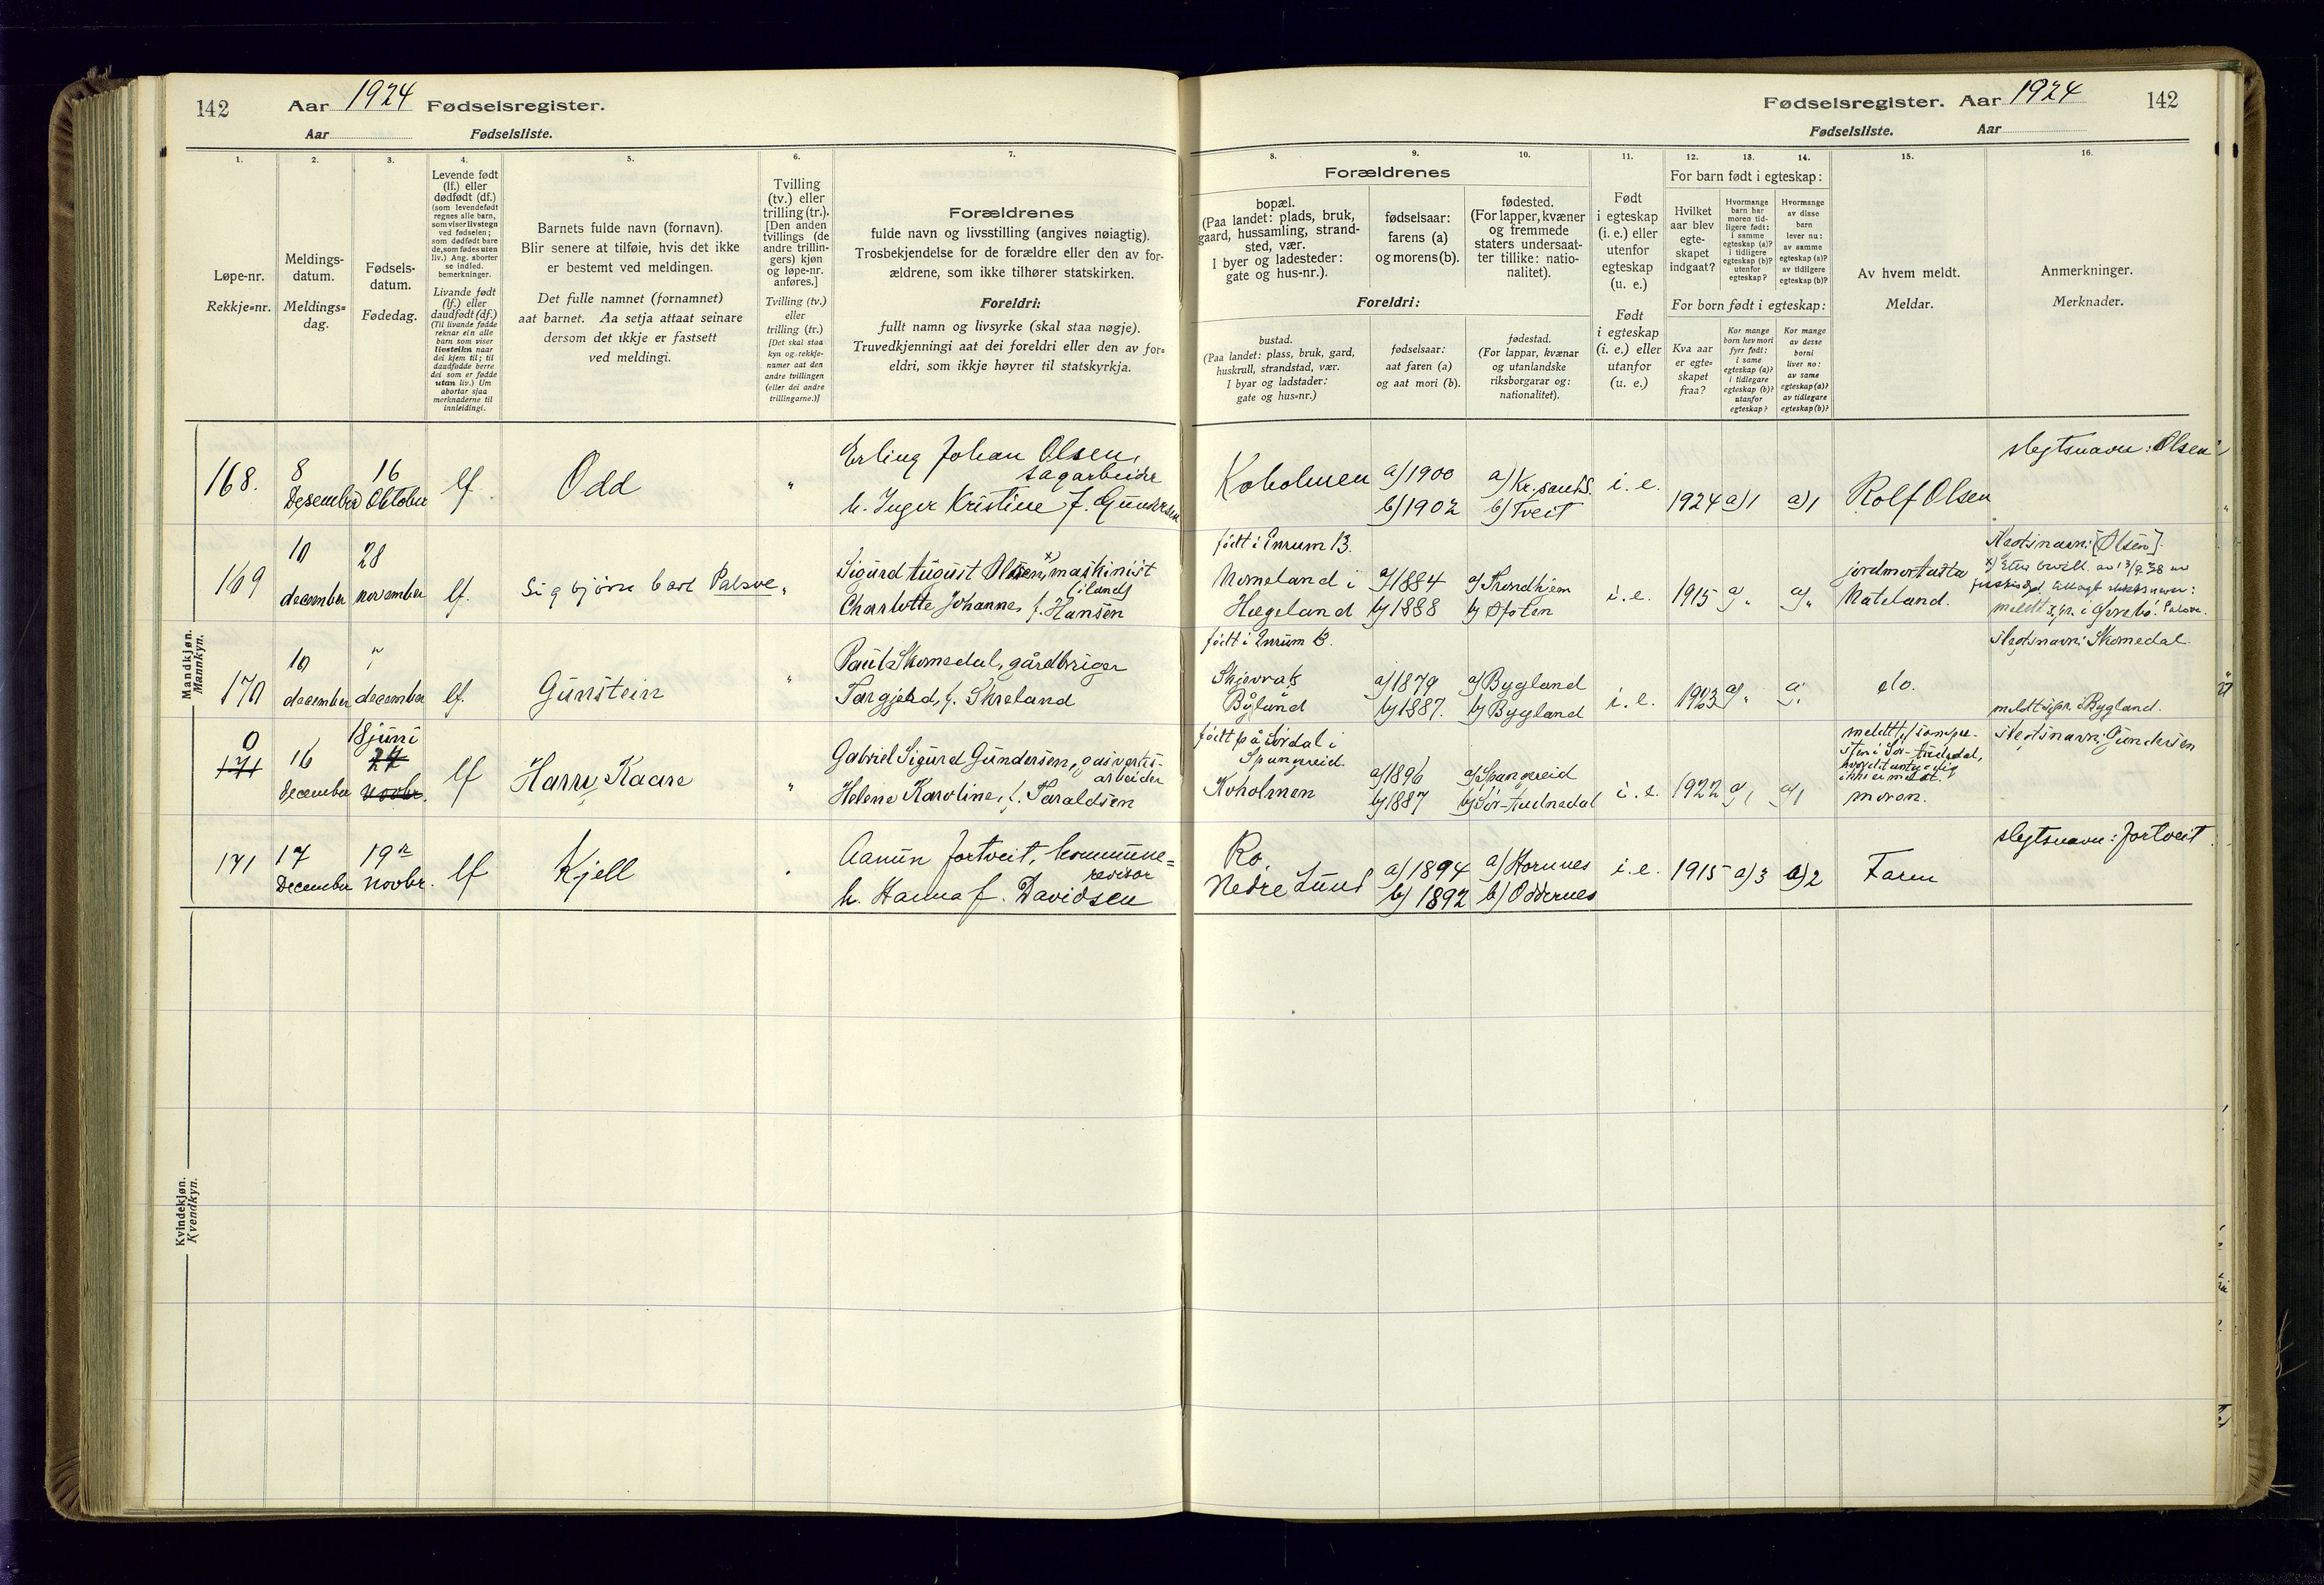 142 Aar 1924 Fødselsregister.
Aar Fødselsliste.
1.
Løpe-nr.
Rekkje=nr.
2.
Meldings-
datum.
Meldings=
dag.
3.
Fødsels-
datum.
Fødedag.
4.
Levende født
(lf.) eller
dødfødt (df.)
(som levendefødt
regnes alle barn,
som viser livstegn
ved fødselen;
som dødfødt bare
de, som fødes uten
liv.) Ang. aborter
se indled.
bemerkninger.
Livande født
(lf.) eller
daudfødt (df.)
(Til livande fødde
reknar ein alle
barn som viser
livsteikn naar
dei kjem til; til
daudfødde berre
dei som er fødde
utan liv.) Um
abortar sjaa
merknaderne til
innleidingi.
5.
Barnets fulde navn (fornavn).
Blir senere at tilføie, hvis det ikke
er bestemt ved meldingen.
Det fulle namnet (fornamnet)
aat barnet. Aa setja attaat seinare
dersom det ikkje er fastsett
ved meldingi.
6.
Tvilling
(tv.) eller
trilling (tr.).
[Den anden
tvillings (de
andre trillin-
gers) kjøn
og løpe-nr.
anføres.]
Tvilling (tv.)
eller
trilling (tr.)
[Det skal staa
kyn og rekkje-
numer aat den
andre tvillingen
(eller dei andre
trillingarne.)]
7.
Forældrenes
fulde navn og livsstilling (angives nøiagtig).
Trosbekjendelse for de forældre eller den av for-
ældrene, som ikke tilhører statskirken.
Foreldri:
fullt namn og livsyrke (skal staa nøgje).
Truvedkjenningi aat dei foreldri eller den av for=
eldri, som ikkje høyrer til statskyrkja.
Mandkjøn.
Mannkyn.
168.
8
Desember
16
Oktober
lf.
Odd
"
Erling Johan Olsen,
sagarbeider
h. Inger Kristine f. Gundersen
169
10
december
28
november
lf.
Sigbjørn Carl Palsve
"
Sigurd August Olsen, x) maskinist
(i land)
Charlotte Johanne, f. Hansen
170
10
december
december
lf.
Gunstein
"
Paul Skomedal, gårdbruger
Targjerd, f. Skreland
0
171
16
december
18 juni
27
novbr.
lf
Harry Kaare
"
Gabriel Sigurd Gundersen, gasverks-
arbeider
Helene Karoline, f. Taraldsen
171
17
December
19de
novbr.
lf
Kjell
"
Aanun Fortveit, kommune=
revisor
h. Hanna f. Davidsen
Kvindekjøn.
Kvendkyn.
Fødselsregister. Aar 1924 142
Fødselsliste. Aar
Forældrenes
8.
bopæl.
(Paa landet: plads, bruk,
gaard, hussamling, strand-
sted, vær.
I byer og ladesteder:
gate og hus-nr.).
9.
fødselsaar:
farens (a)
og morens (b).
10.
fødested.
(For lapper, kvæner
og fremmede
staters undersaat-
ter tillike: natio-
nalitet).
Foreldri:
bustad.
(Paa landet: plass, bruk, gard,
huskrull, strandstad, vær.
I byar og ladstader:
gate og hus=nr.)
fødselsaar:
aat faren (a)
og aat mori (b).
fødestad.
(For lappar, kvænar
og utanlandske
riksborgarar og:
nationalitet).
11.
Født
i egteskap
(i. e.) eller
utenfor
egteskap
(u. e.)
Født
i egteskap
(i. e.) eller
utanfor
(u. e.)
For barn født i egteskap:
12.
Hvilket
aar blev
egte-
skapet
indgaat?
13.
Hvormange
barn har
moren tid-
ligere født:
i samme
egteskap (a)?
i tidligere
egteskap (b)?
utenfor
egteskap?
14.
Hvormange
av disse
barn
lever nu:
av samme
egteskap (a)?
av tidligere
egteskap (b)?
For born født i egteskap:
Kva aar
er egte=
skapet
fraa?
Kor mange
born hev mori
fyrr født:
i same
egteskap (a)?
i tidlegare
egteskap (b)?
utanfor
egteskap?
Kor mange
av desse
borni
liver no:
av same
egteskap (a)?
av tidlegare
egteskap (b)?
15.
Av hvem meldt.
Meldar.
16.
Anmerkninger.
Merknader.
Koholmen
a) 1900
b) 1902
a) Kr.sands.
b) Tveit
i. e.
1924
a) 1
a) 1
Rolf Olsen
slegtsnavn: Olsen
født i Enrum 13.
Homeland i
Hægeland
a) 1884
b) 1888
a) Trondhjem
b) Ofoten
i. e.
1915
a) "
a) "
jordmor
Nateland.
slegtsnavn: [Olsen].
født i Enrum 6.
Bygland
a) 1879
b) 1887.
a) Bygland
b) Bygland
i. e.
1923
a) "
a) "
do.
slegtsnavn: Skomedal.
meldt sgpr. i Bygland.
født på Sørdal i
Spangereid.
Koholmen
a) 1896
b) 1887
a) Spangereid
b) Sør-Audnedal
i. e.
1922
a) 1
a) 1
moren.
slegtsnavn: Gundersen
Ro,
Nedre Lund
a) 1894
b) 1892
a) Hornnes
b) Oddernes
i. e.
1915
a) 3
a) 2
Faren
slegtsnavn: Fortveit